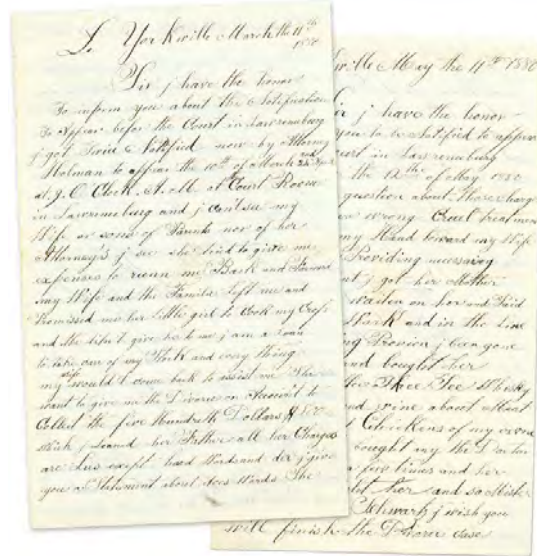 Yorkville March the 11th
1880
Sir j have the honor
To inform you about the Notification
To Appear befor the Court in Lawrenceburg
j got Twice Notified now by Attorny
Holman to appear the 10th of March and
at 9. O. Clock. A. M. at Court Room
in Lawrenceburg and j cant see my
Wife or some of Parents nor of her
Attorney's j see she tried to give me
expenses to ruin me Back and Forward
my Wife and the Familie left me and
Promised me her little girl to Cook my
and she didn't give her to me j am a Loan
to take care of my Stock and every Thing
my wife would t come back to assist me She
want to give me the Divorce on Account to
Collect the five Hundreth Dollars $500
which j loaned her Father all her Charges
are Lies except hard Words and der j give
you a Statement about does Words She
ville May the 11th 1880
j have the honor
you to be Notified to appear
Court in Lawrenceburg
the 12th of May 1880
question about Those Charges
wrong Cruel treatment
my Hand toward my Wife
Providing necessary
j got her Mother
Waiten on her and Paid
Work and in the Line
Provision j been gone
and bought her
Whisky
and wine about
Chickens of my own
bought my the Doctor
a few times and her
her and so Mister
Schwartz j wish you
will finish the Divorce case